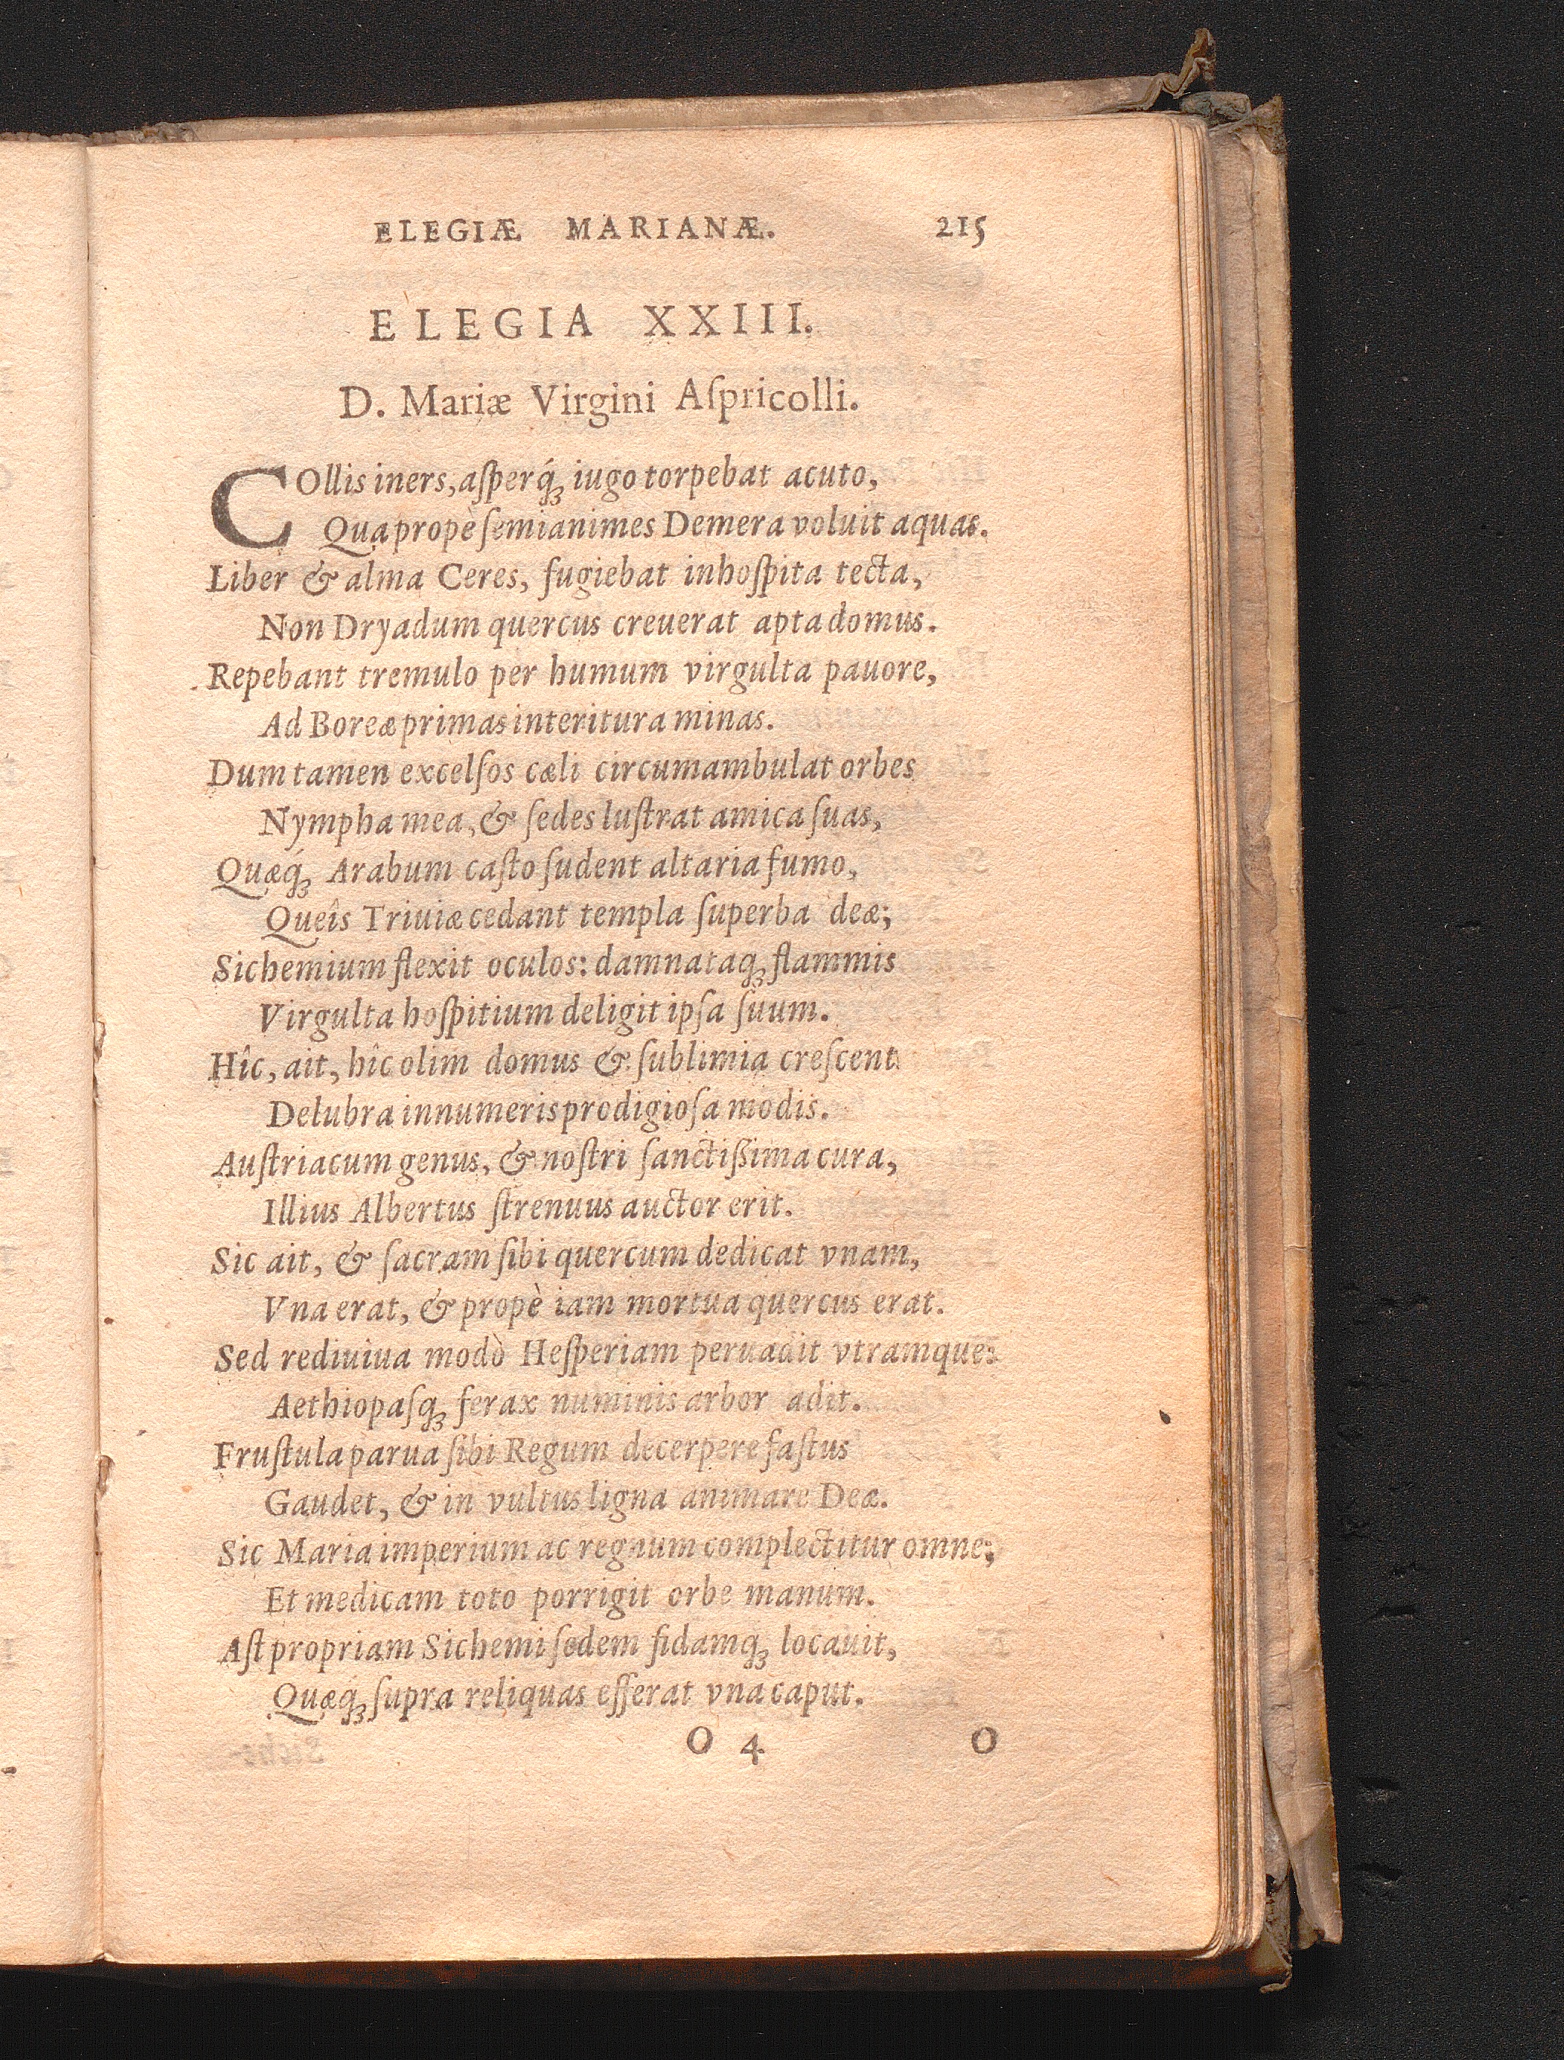 ELEGIÆ MARIANÆ. 215
ELEGIA XXIII.
D. Mariæ Virgini Aſpricolli.
COllis iners, aſperq́ꝫ iugo torpebat acuto,
Qua propè ſemianimes Demera voluit aquas.
Liber & alma Ceres, fugiebat inhoſpita tecta,
Non Dryadum quercus creuerat apta domus.
Repebant tremulo per humum virgulta pauore,
Ad Boreæ primas interitura minas.
Dum tamen excelſos cæli circumambulat orbes
Nympha mea, & ſedes luſtrat amica ſuas,
Quæq́ꝫ Arabum caſto ſudent altaria fumo,
Queîs Triuiæ cedant templa ſuperba deæ;
Sichemium flexit oculos: damnataqꝫ flammis
Virgulta hoſpitium deligit ipſa ſuum.
Hîc, ait, hîc olim domus & ſublimia creſcent
Delubra innumeris prodigioſa modis.
Auſtriacum genus, & noſtri ſanctißima cura,
Illius Albertus ſtrenuus auctor erit.
Sic ait, & ſacram ſibi quercum dedicat vnam,
Vna erat, & propè iam mortua quercus erat.
Sed rediuiua modò Heſperiam peruadit vtramque:
Aethiopaſqꝫ ferax numinis arbor adit.
Fruſtula parua ſibi Regum decerpere faſtus
Gaudet, & in vultus ligna animare Deæ.
Sic Maria imperium ac regnum complectitur omne;
Et medicam toto porrigit orbe manum.
Aſt propriam Sichemi ſedem fidamqꝫ locauit,
Quæq́ꝫ ſupra reliquas efferat vna caput.
O 4 O